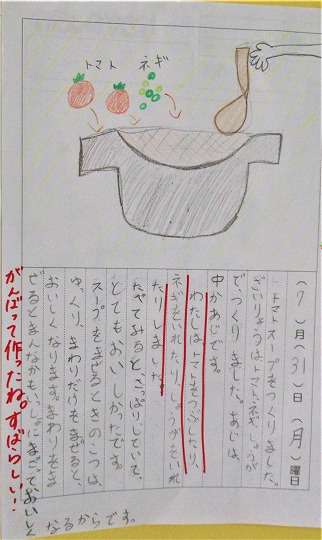 トマト ネギ
(7)月(31)日(月)曜日
トマトスープをつくりました。
ざいりょうはトマト、ネギ、しょうが
で、つくりました。あじは、
中かあじです。
わたしはトマトをつぶしたり、
ネギをいれたり、しょうがをいれ
たりしました。
たべてみると、さっぱりしていて、
とてもおいしかったです。
スープをまぜるときのこつは、
ゆっくり、まわりだけをまぜると、
おいしくなります。まわりをま
ぜるとまんなかもいっしょにまざっておいしく
なるからです。
がんばって作ったね。すばらしい…